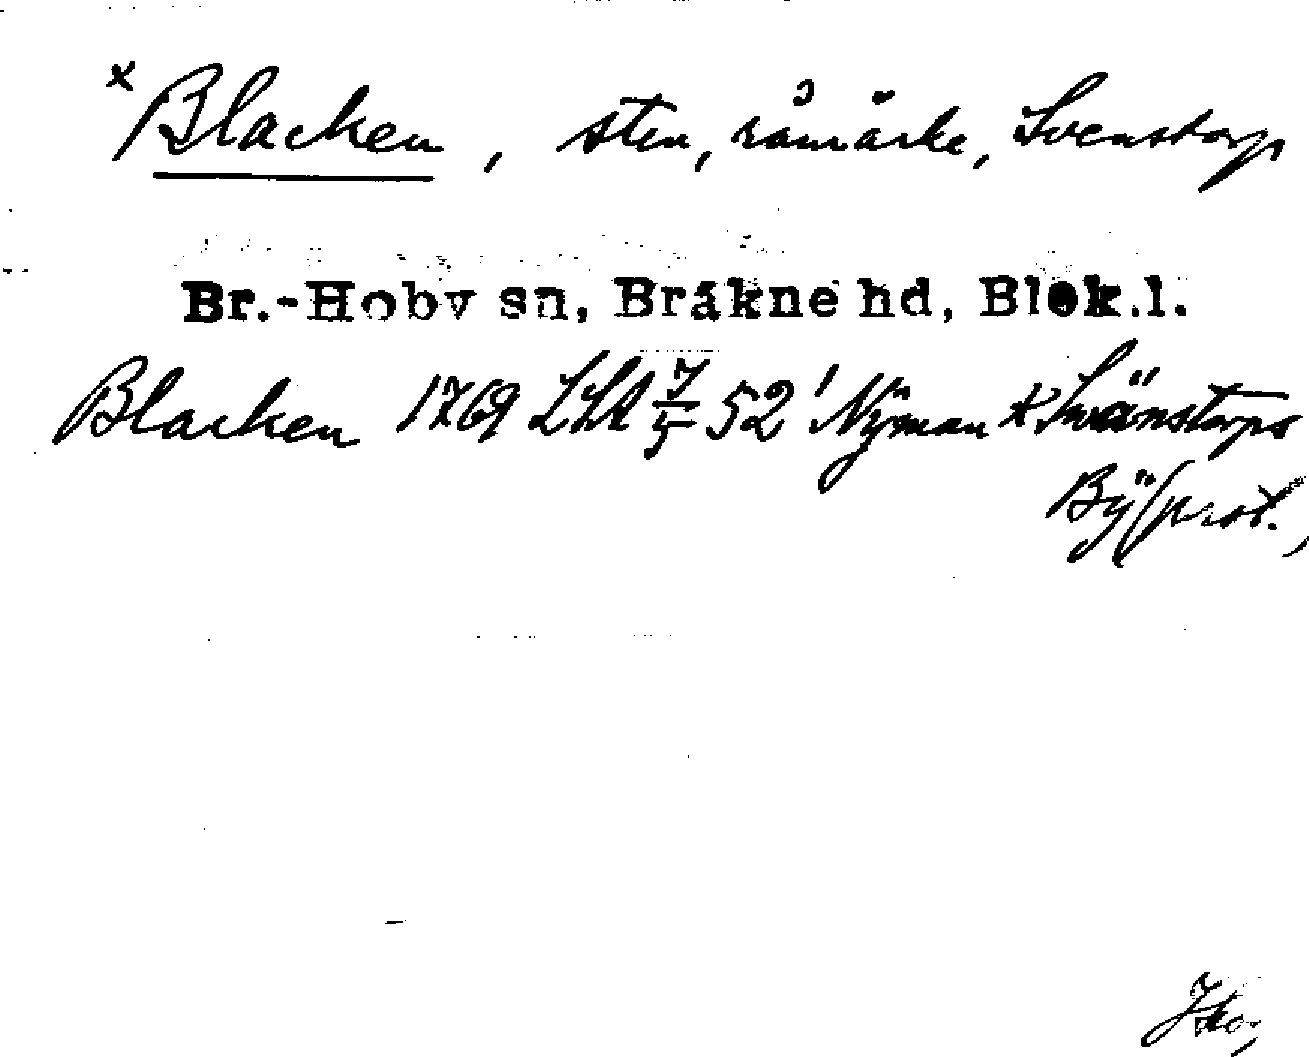 x Blacken, sten, råmärke, Svenstorp
Br.-Hoby sn, Bräkne hd, Blek.l.
Blacken 1769 LSA 7/5 52 Nyman x Swänstorps
Bÿ(prot.,